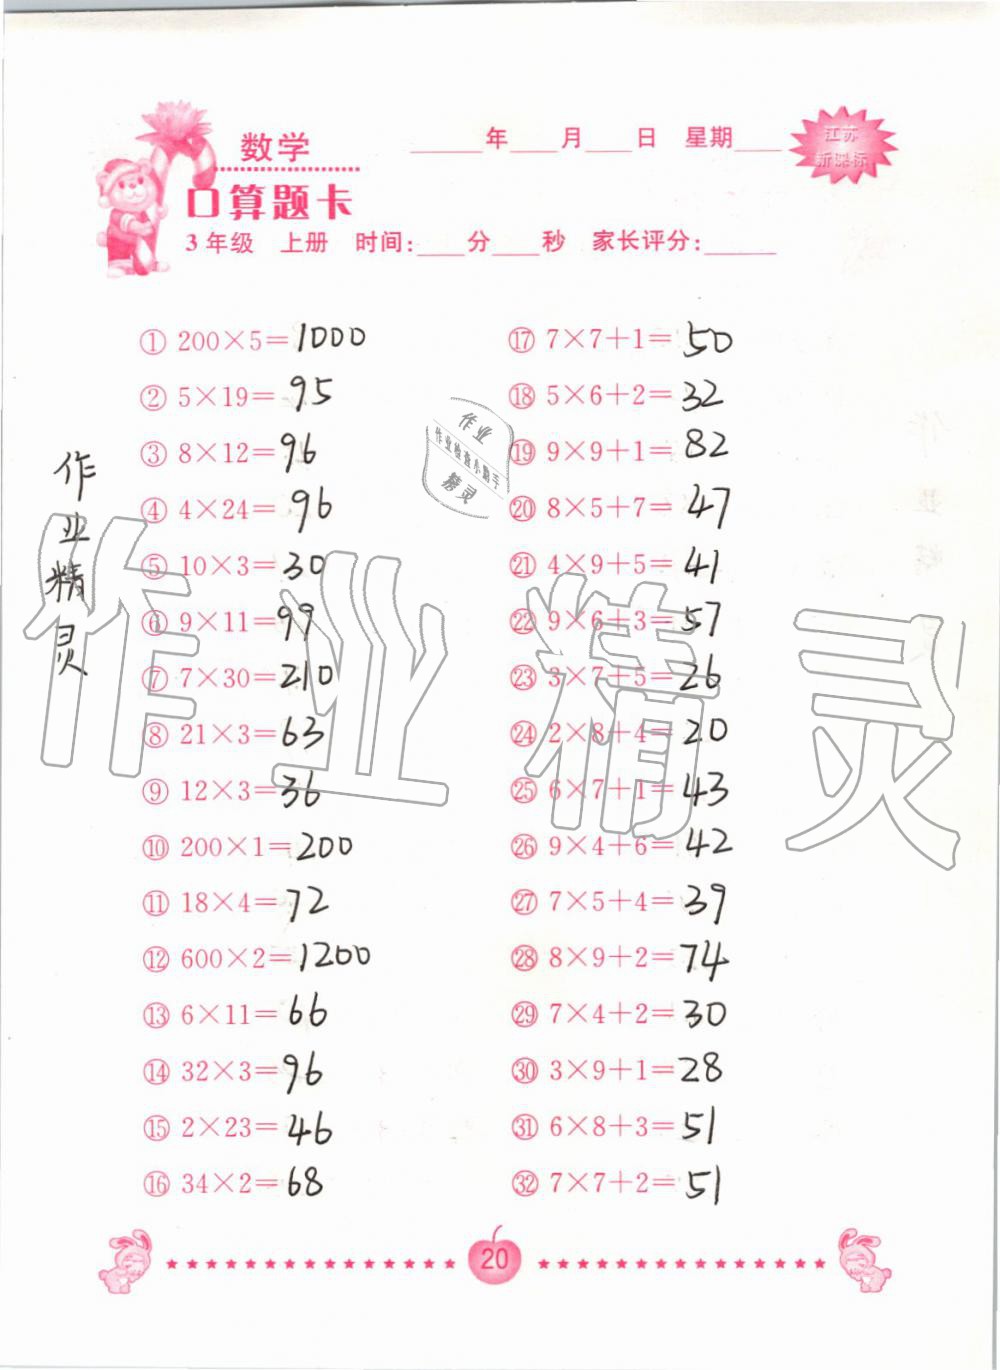 数学
____年____月____日 星期____
江苏
新课标
口算题卡
3年级 上册 时间:____分____秒 家长评分:____
① 200×5=1000
② 5×19=95
③ 8×12=96
④ 4×24=96
⑤ 10×3=30
⑥ 9×11=99
⑦ 7×30=210
⑧ 21×3=63
⑨ 12×3=36
⑩ 200×1=200
⑪ 18×4=72
⑫ 600×2=1200
⑬ 6×11=66
⑭ 32×3=96
⑮ 2×23=46
⑯ 34×2=68
⑰ 7×7+1=50
⑱ 5×6+2=32
⑲ 9×9+1=82
⑳ 8×5+7=47
㉑ 4×9+5=41
㉒ 9×6+3=57
㉓ 3×7+5=26
㉔ 2×8+4=20
㉕ 6×7+1=43
㉖ 9×4+6=42
㉗ 7×5+4=39
㉘ 8×9+2=74
㉙ 7×4+2=30
㉚ 3×9+1=28
㉛ 6×8+3=51
㉜ 7×7+2=51
作业精灵
作业
作业检查小助手
精灵
作业精灵
20